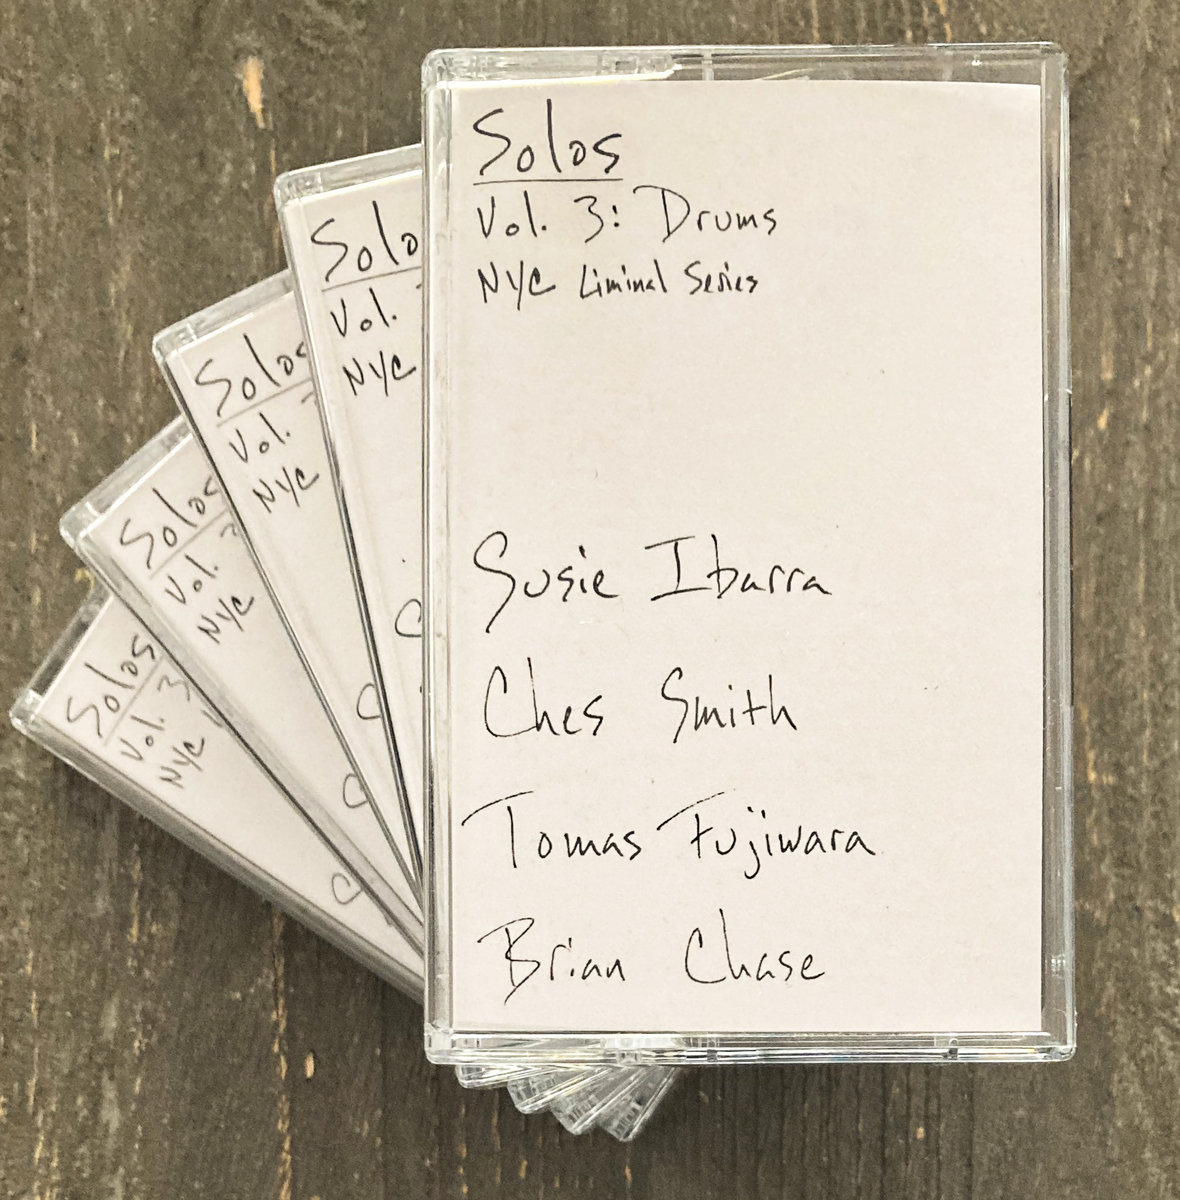 Solos
Vol. 3: Drums
NYC Liminal Series
Susie Ibarra
Ches Smith
Tomas Fujiwara
Brian Chase
Solo
Vol.
NYC
Solos
Vol.
NYC
Solos
Vol.
NYC
Solos
Vol. 3
NYC